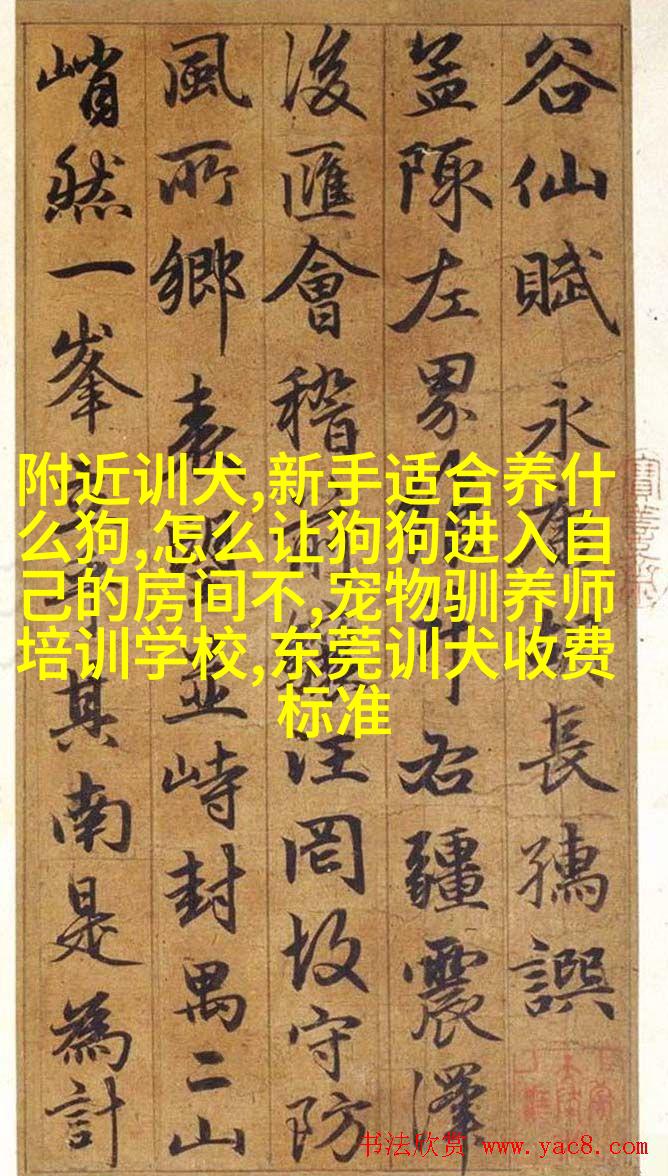 谷仙賦 永長孺譔
盖陳左界右疆震澤
後匯會稽汪罔故守防
風所鄉表並峙封禺二山
峭然一峯其南是為計
附近训犬,新手适合养什
么狗,怎么让狗狗进入自
己的房间不,宠物驯养师
培训学校,东莞训犬收费
标准
书法欣赏 www.yac8.com